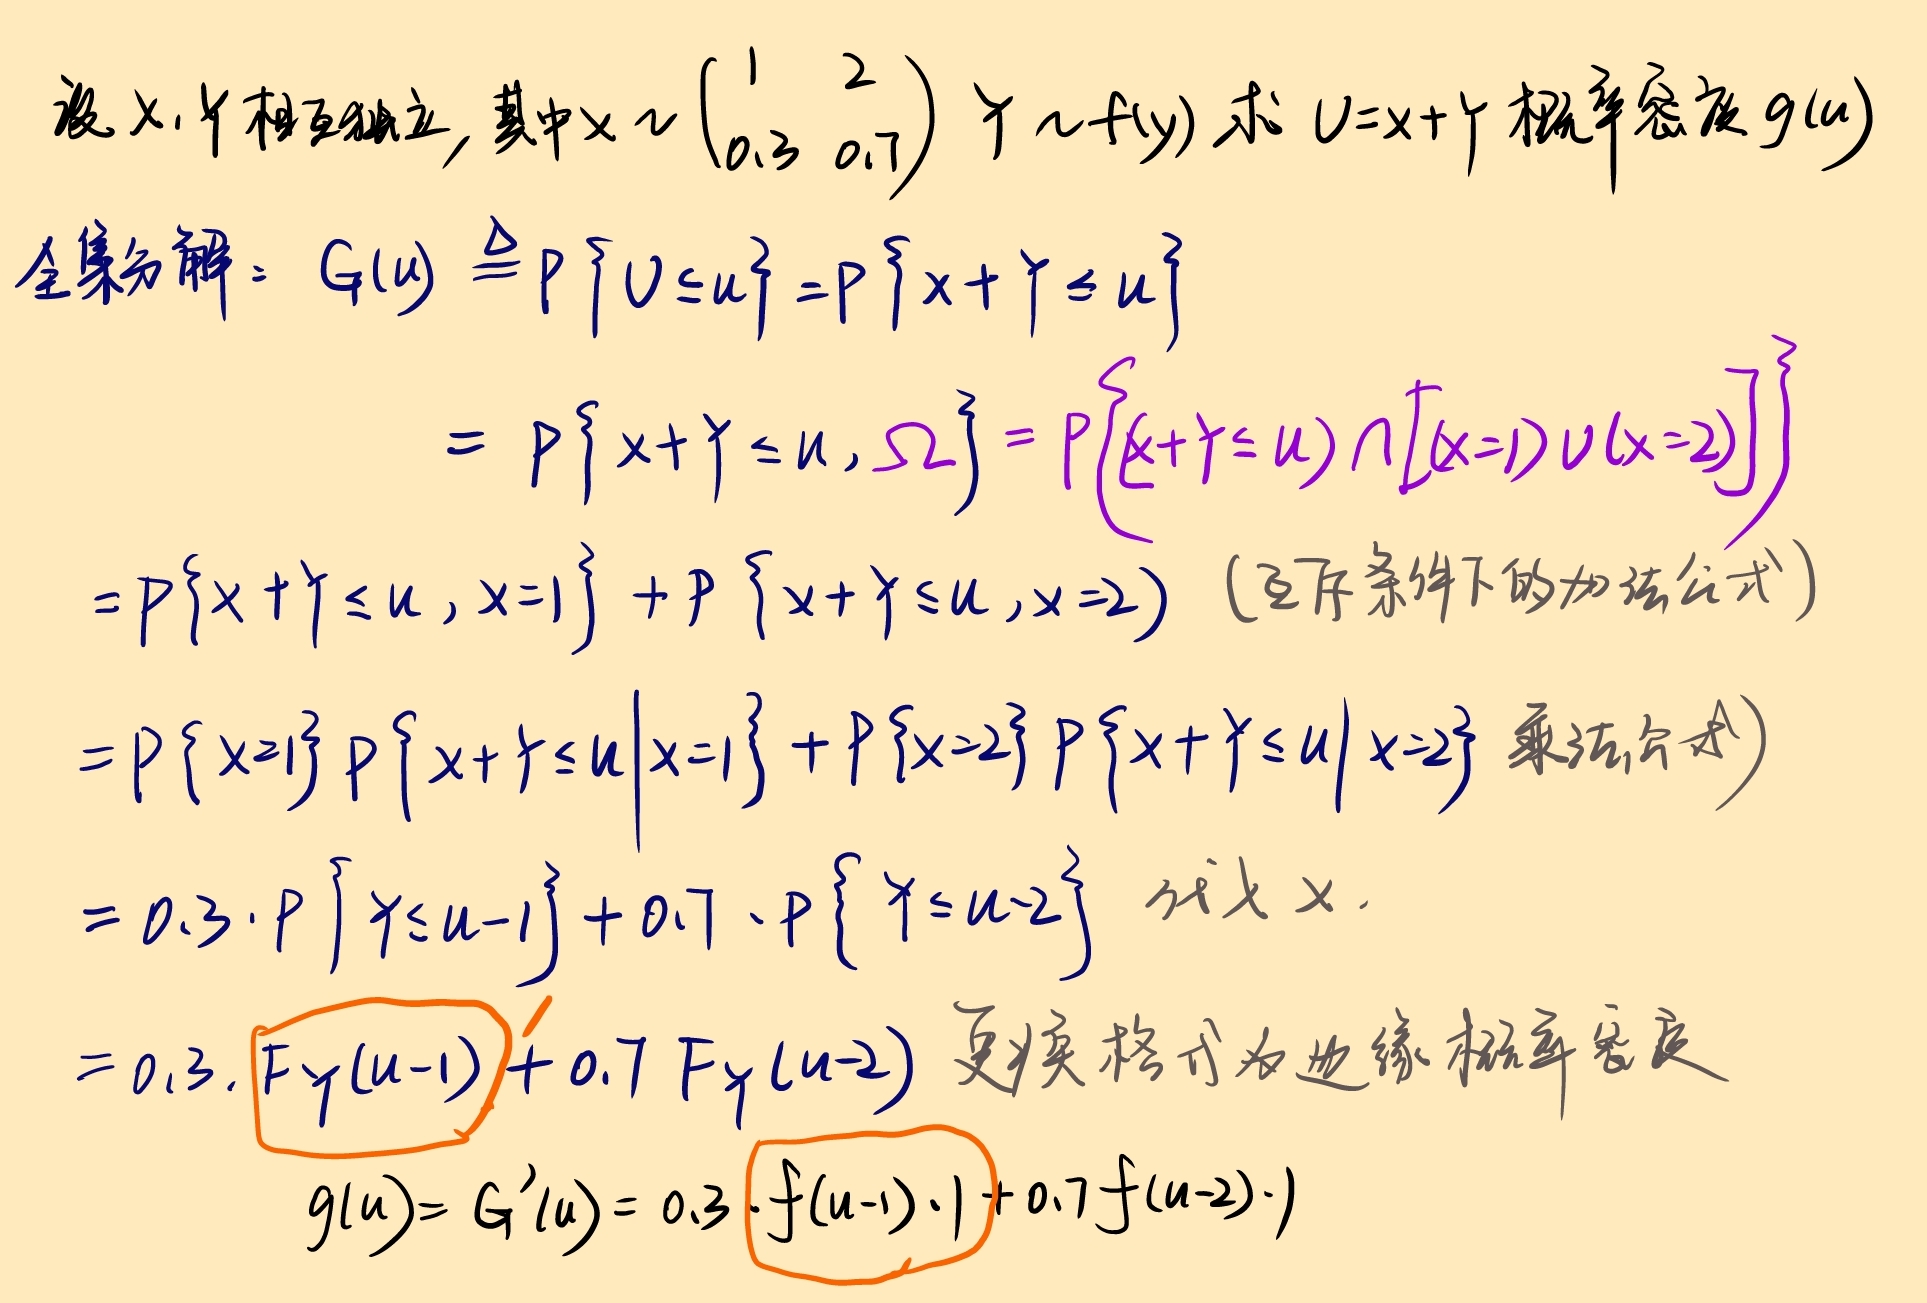 设 X,Y 相互独立, 其中 X ~ (1 2 0.3 0.7) Y ~ f(y) 求 U=X+Y 概率密度 g(u)
全集分解: G(u) ≜ P{U≤u} = P{X+Y≤u}
= P{X+Y≤u, Ω} = P{(X+Y≤u)∩[(X=1)∪(X=2)]}
= P{X+Y≤u, X=1} + P{X+Y≤u, X=2) (互斥条件下的加法公式)
= P{X=1} P{X+Y≤u|X=1} + P{X=2} P{X+Y≤u|X=2} 乘法公式)
= 0.3·P{Y≤u-1} + 0.7·P{Y≤u-2} 代入 X.
= 0.3·F_Y(u-1) + 0.7 F_Y(u-2) 更换格式为边缘概率密度
g(u) = G'(u) = 0.3·f(u-1)·1 + 0.7 f(u-2)·1